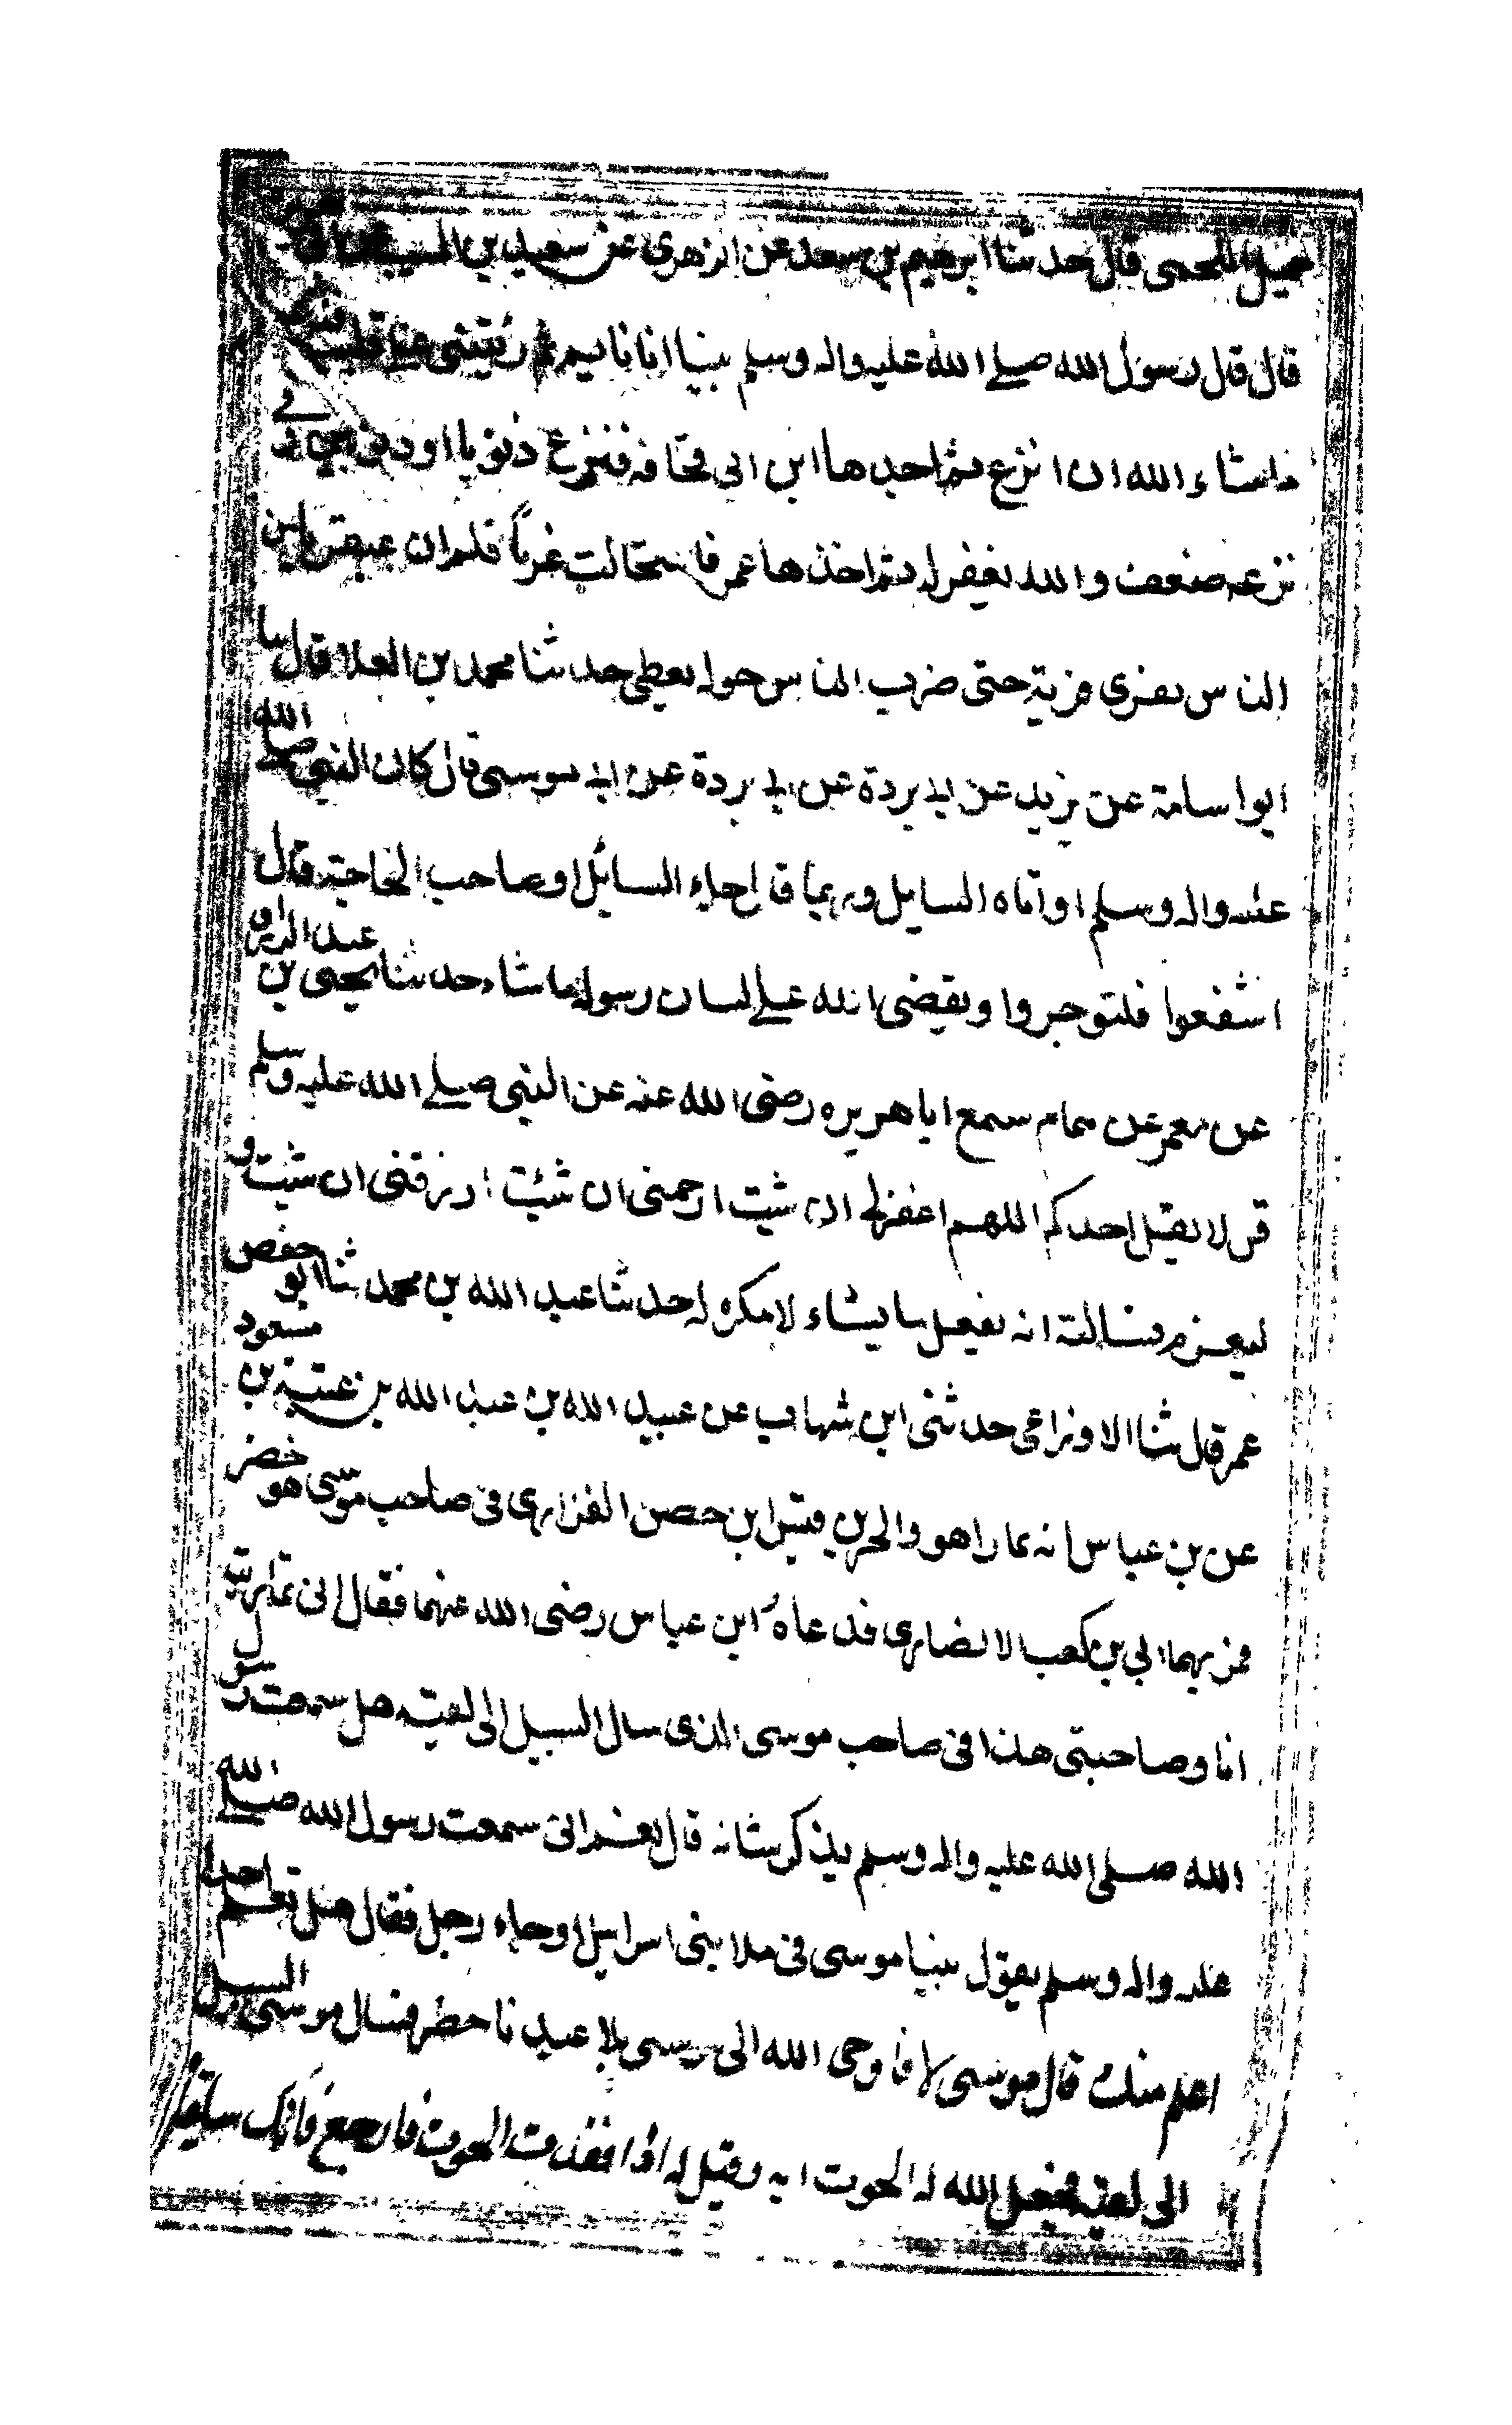 جميل اللخمى قال حدثنا ابرهيم بن سعد عن الزهري عن سعيد بن المسيب عن ابى هريرة
قال قال رسول الله صلے الله عليه واله وسلم بينا انا نايم رئيتنى على قليب فنزعت
ماشاء الله ان انزع ثم اخذها ابن ابى قحافه فنزع ذنوبا او ذنوبين وفى
نزعه ضعف والله يغفر له ثم اخذها عمر فاستحالت غربا فلم ار عبقريا من
الناس يفرى فرية حتى ضرب الناس حوله بعطن حدثنا محمد بن العلا قال ثنا
ابو اسامة عن بريد عن ابى بردة عن ابى بردة عن ابى موسى قال كان النبى صلے الله
عليه واله وسلم اذا اتاه السايل وربما قال جاء السايل او صاحب الحاجته قال
اشفعوا فلتوجروا ويقضى الله علے لسان رسوله ماشاء حدثنا يحيى بن عبد الرزاق
عن معمر عن همام سمع ابا هريره رضى الله عنه عن النبى صلے الله عليه وسلم
قل لا يقيل احدكم اللهم اغفرلى ان شيت ارحمنى ان شئت ارزقنى ان شيت و
ليعزم مسالته انه يفعل ما يشاء لا مكره له حدثنا عبد الله بن محمد ثنا ابو حفص
عمر قال ثنا الاوزاعى حدثنى ابن شهاب عن عبيد الله بن عبد الله بن عتبة بن مسعود
عن بن عباس انه تمارا هو والحر بن قيس ابن حصن الفزارى فى صاحب موسى هو خضر
فمر بهما ابي بن كعب الانصارى فدعاه ابن عباس رضى الله عنهما فقال انى تماريت
انا وصاحبتى هذا فى صاحب موسى الذى سال السبيل الى لقيه هل سمعت رسول
الله صلى الله عليه واله وسلم يذكر شانه قال نعم انى سمعت رسول الله صلے الله
عليه واله وسلم يقول بينا موسى فى ملا بنى اسرايل اذ جاء رجل فقال هل تعلم احدا
اعلم منك قال موسى لا فاوحى الله الى موسى بلا عبدنا خضر فسال موسى السبيل
الى لقيه فجعل الله له الحوت ايه وقيل له اذا فقدت الحوت فارجع فانك ستلقاه